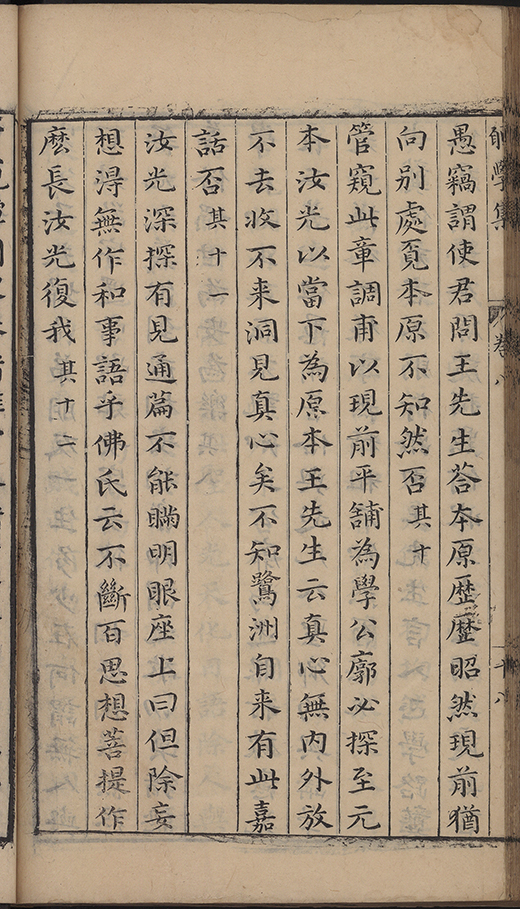 學集 卷八 十八
愚竊謂使君問王先生荅本原歷歷昭然現前猶
向別處覓本原不知然否其十
管窺此章調甫以現前平鋪為學公廓必探至元
本汝光以當下為原本王先生云真心無內外放
不去收不来洞見真心矣不知鷺洲自来有此嘉
話否其十一
汝光深探有見通篇不能瞞明眼座上曰但除妄
想得無作和事語乎佛氏云不斷百思想菩提作
麽長汝光復我其十二